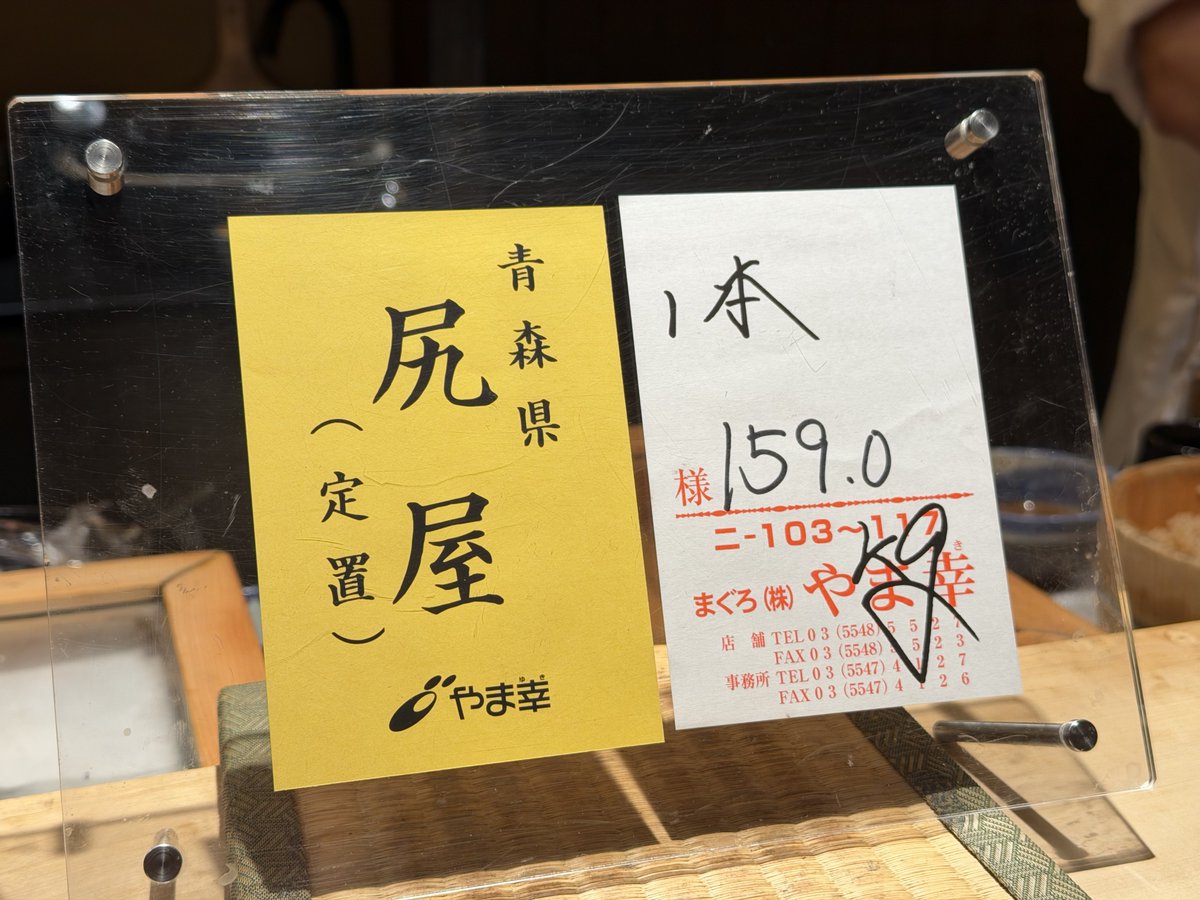 青森県
尻屋
（定置）
やま幸
ゆき
1本
159.0
様
二-103～117
kg
まぐろ（株）やま幸
き
店舗 TEL03(5548)5527
FAX03(5548)5523
事務所 TEL03(5547)4127
FAX03(5547)4126